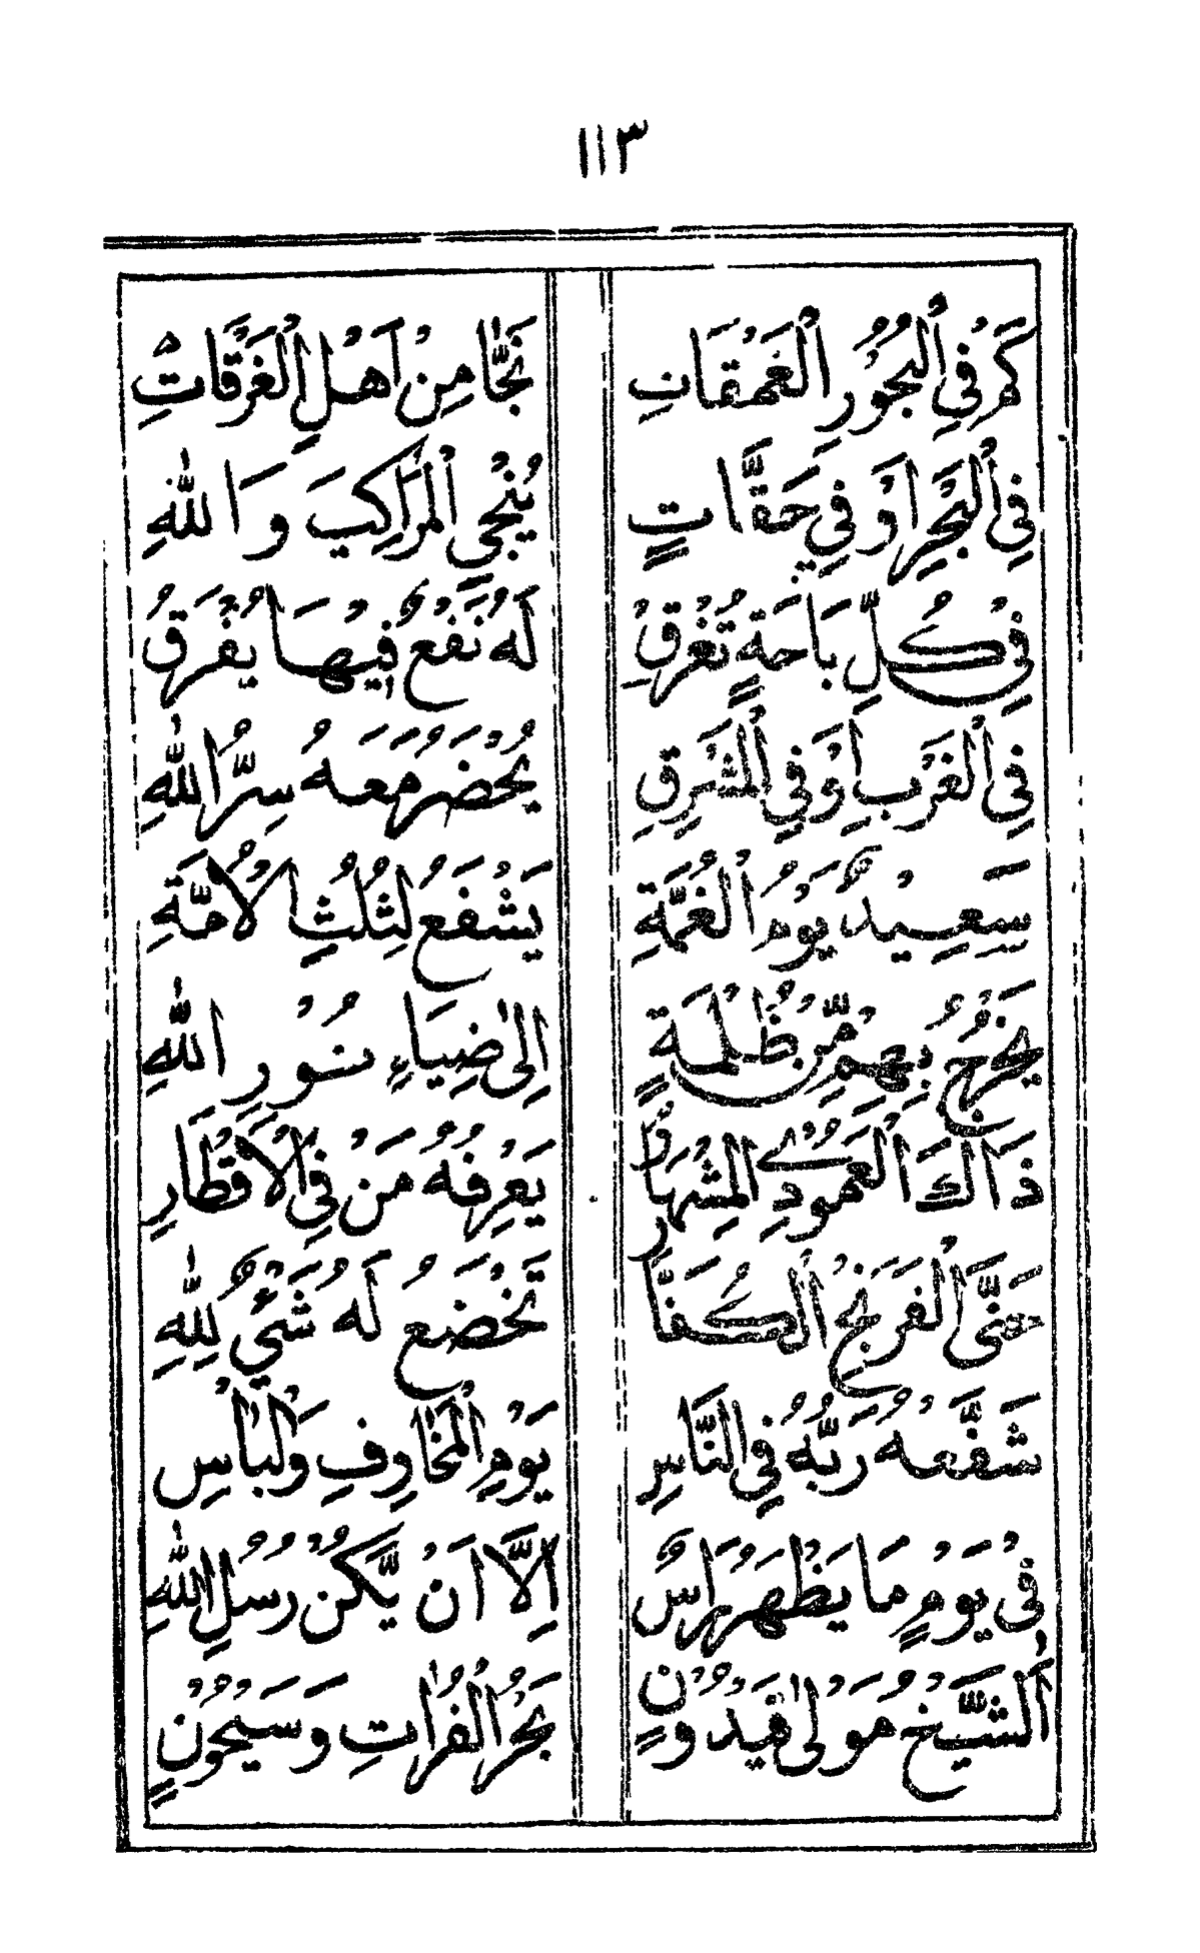 ١١٣
كَمْ فِي الْبُحُورِ الْغَمْقَانِ نَجَّا مِنْ اَهْلِ الْغَرْقَاتِ
فِي الْبَحْرِ اَوْ فِي حَقَّاتٍ يُنْجِي الْمَرَاكِبَ وَاللهِ
فِي كُلِّ بَاحَةٍ تُغْرَقِ لَهُ نَفْعٌ فِيْهَا يُفْرَقُ
فِي الْغَرْبِ اَوْ فِي الْمَشْرِقِ يُحْضَرْ مَعَهُ سِرُّ اللهِ
سَعِيْدٌ يَوْمُ الْغُمَّةِ يَشْفَعُ لِثُلُثِ الْاُمَّةِ
يَخْرُجُ بِهِمْ مِّنْ ظُلْمَةٍ اِلىٰ ضِيَاءِ نُوْرِ اللهِ
ذَاكَ الْعَمُودِي الْمِشْهَارُ يَعْرِفُهُ مَنْ فِي الْاَقْطَارِ
حَتَّى الْفَرَنْجِ الْكُفَّارْ تَخْضَعُ لَهُ شَيْءٌ لِلهِ
شَفَّعْهُ رَبُّهُ فِي النَّاسِ يَوْمِ الْمَخَاوِفِ وَالْبَاسِ
فِيْ يَوْمٍ مَا يَظْهَرْ رَاسٌ اِلَّا اَنْ يَّكُنْ رُسُلِ اللهِ
اَلشَّيْخُ مَوْلىٰ قَيْدُوْنٍ بَحْرُ الْفُرَاتِ وَسَيْحُوْنٍ